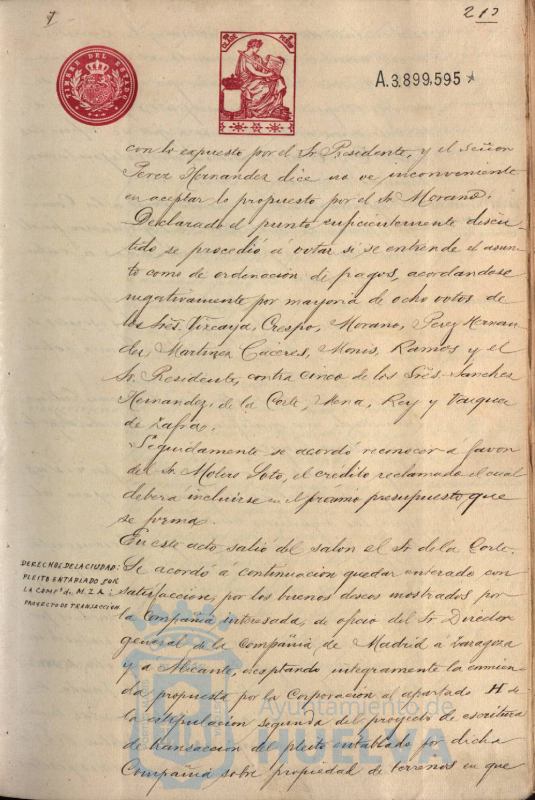 213
TIMBRE DEL ESTADO
A.3.899.595
con lo expuesto por el Sr Presidente, y el Señor
Perez Hernandez dice no ve inconveniente
en aceptar lo propuesto por el Sr Morano.
Declarado el punto suficientemente discu-
tido se procedió á votar si se entiende el asun-
to como de ordenacion de pagos, acordandose
negativamente por mayoria de ocho votos de
los Srēs. Vizcaya, Crespo, Morano, Perez Hernan-
dez, Martinez Cáceres, Monis, Ramos y el
Sr. Presidente, contra cinco de los Srēs. Sanchez
Hernandez, de la Corte, Mena, Rey y Vazquez
de Zafra.
Seguidamente se acordó reconocer á favor
del Sr. Molero Soto, el crédito reclamado el cual
deberá incluirse en el proximo presupuesto que
se forma.
En este acto salió del salon el Sr de la Corte.
DERECHOS DE LA CIUDAD:
PLEITO ENTABLADO POR
LA COMPª de M.Z.A:
PROYECTO DE TRANSACCION
Se acordó á continuacion quedar enterado con
satisfaccion, por los buenos deseos mostrados por
la Compañia interesada, de oficio del Sr Director
general de la Compañia de Madrid á Zaragoza
y á Alicante, aceptando integramente la enmien-
da propuesta por la Corporacion al apartado H de
la estipulacion segunda del proyecto de escritura
de transaccion del pleito entablado por dicha
Compañia sobre propiedad de terrenos en que
Ayuntamiento de
HUELVA